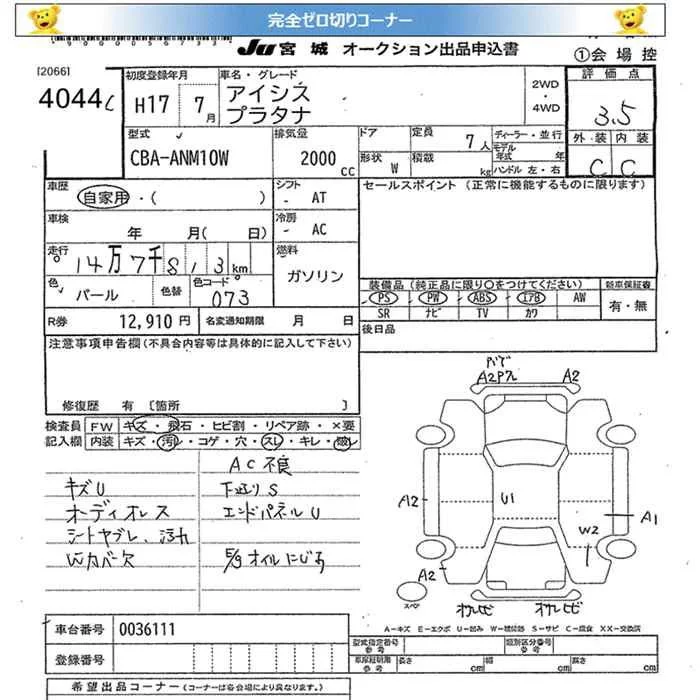 完全ゼロ切りコーナー
JU 宮城 オークション出品申込書
①会場控
[2066]
4044
初度登録年月
H17 7月
車名・グレード
アイシス
プラタナ
2WD
・
4WD
評価点
3.5
外装 内装
C C
型式
CBA-ANM10W
排気量
2000 cc
ドア
形状 W
定員 7人
積載 kg
ディーラー・並行
モデル年式 年
ハンドル 左・右
車歴
自家用・( )
シフト
- AT
セールスポイント (正常に機能するものに限ります)
車検
年 月( 日)
冷房
- AC
走行
14万7千813km
燃料
ガソリン
色
パール
色替
色コード
073
装備品 (純正品に限り○をつけてください)
新車保証書
PS PW ABS エアB AW
有・無
SR ナビ TV カワ
R券 12,910円
名変通知期限 月 日
後日品
注意事項申告欄(不具合内容等は具体的に記入して下さい)
修復歴 有 〔箇所 〕
検査員
記入欄
FW キズ・飛石・ヒビ割・リペア跡・×要
内装 キズ・汚レ・コゲ・穴・スレ・キレ・
AC不良
キズU
下廻りS
オーディオレス
エンドパネルU
シートヤブレ、汚れ
Wカバー欠
E/gオイルにじみ
A2
A2
A2
U1
A1
W2
A2
スペア
A-キズ E-エクボ U-凹み W-補修跡 S-サビ C-腐食 XX-交換済
車台番号 0036111
登録番号
型式指定番号
参考
類別区分番号
参考
車庫証明用
参考
長さ cm
幅 cm
高さ cm
希望出品コーナー (コーナーは各会場により異なります。)